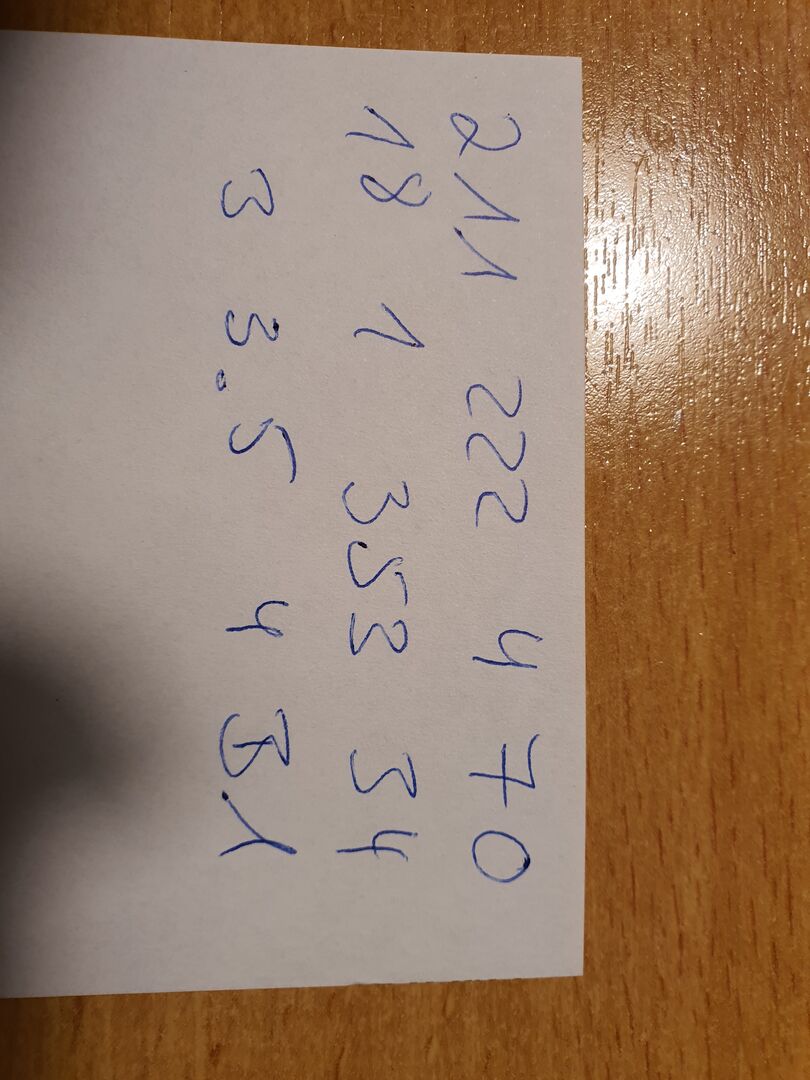 211 222 4 70
18 1 353 34
3 3.5 4 31